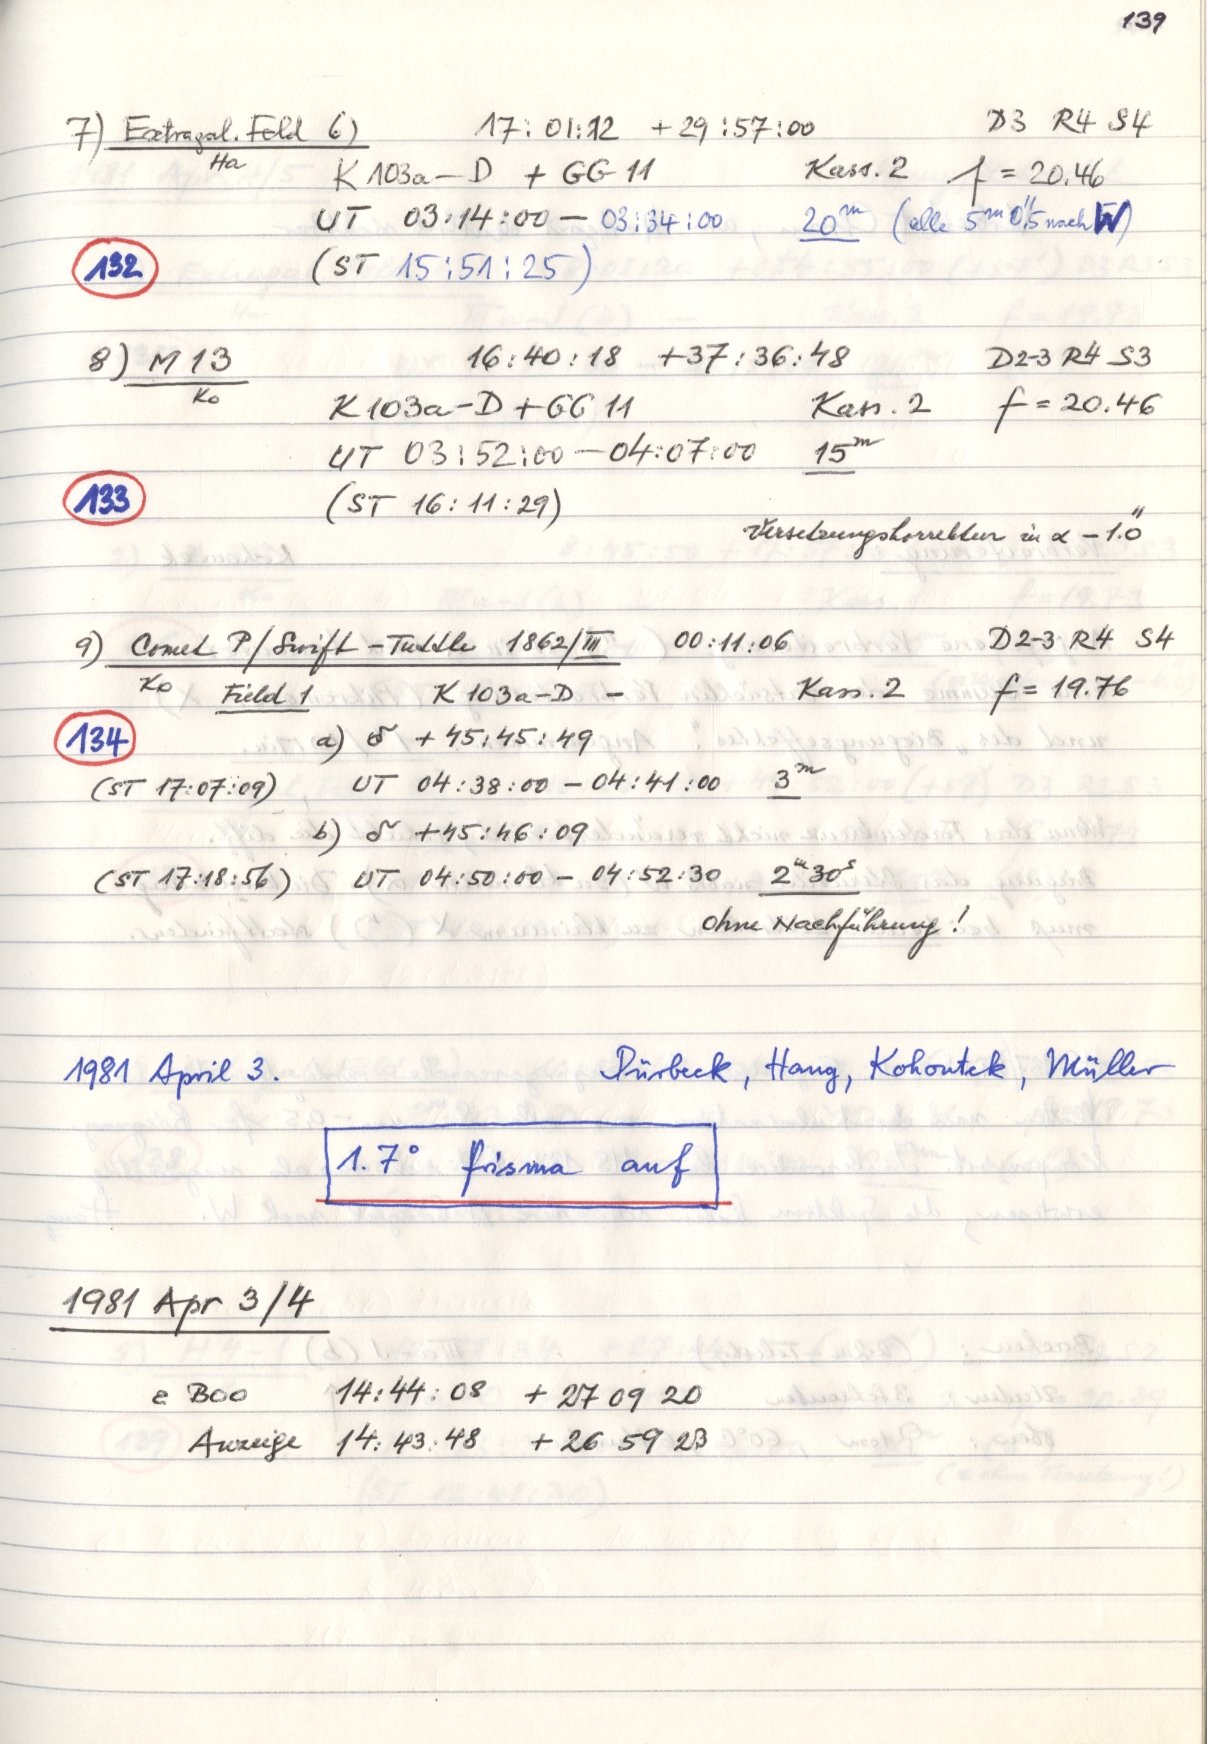 139
7) Extragal. Feld 6) 17:01:12 +29:57:00 D3 R4 S4
Ha K 103a-D + GG 11 Kass. 2 f = 20.46
UT 03:14:00 - 03:34:00 20m (alle 5m 0".5 nach W)
132 (ST 15:51:25)
8) M 13 16:40:18 +37:36:48 D2-3 R4 S3
Ko K 103a-D + GG 11 Kass. 2 f = 20.46
UT 03:52:00 - 04:07:00 15m
133 (ST 16:11:29)
Versetzungskorrektur in α - 1.0"
9) Comet P/Swift-Tuttle 1862/III 00:11:06 D2-3 R4 S4
Ko Field 1 K 103a-D - Kass. 2 f = 19.76
134 a) δ +45:45:49
(ST 17:07:09) UT 04:38:00 - 04:41:00 3m
b) δ +45:46:09
(ST 17:18:56) UT 04:50:00 - 04:52:30 2m 30s
ohne Nachführung!
1981 April 3. Dürbeck, Haug, Kohoutek, Müller
1.7° Prisma auf
1981 Apr 3/4
ε Boo 14:44:08 + 27 09 20
Anzeige 14:43:48 + 26 59 23